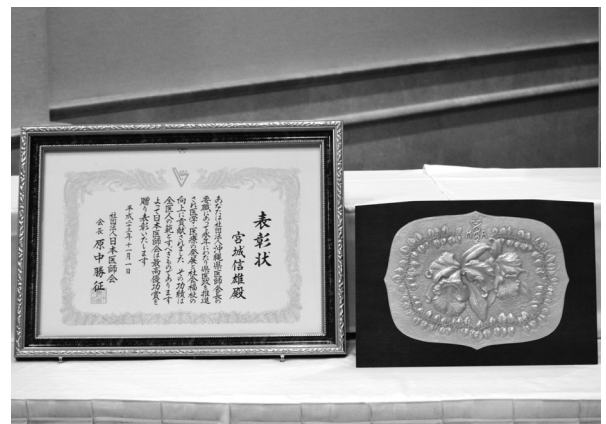 表彰状
宮城信雄殿
あなたは社団法人沖縄県医師会長の
要職にあって永年にわたり県医政を推進
され医学・医療の発展と社会福祉の
向上に貢献されました その功績は
全医人の範とすべきものであります
よって日本医師会は最高優功賞を
贈り表彰いたします
平成二三年十一月一日
社団法人日本医師会
会長 原中勝征